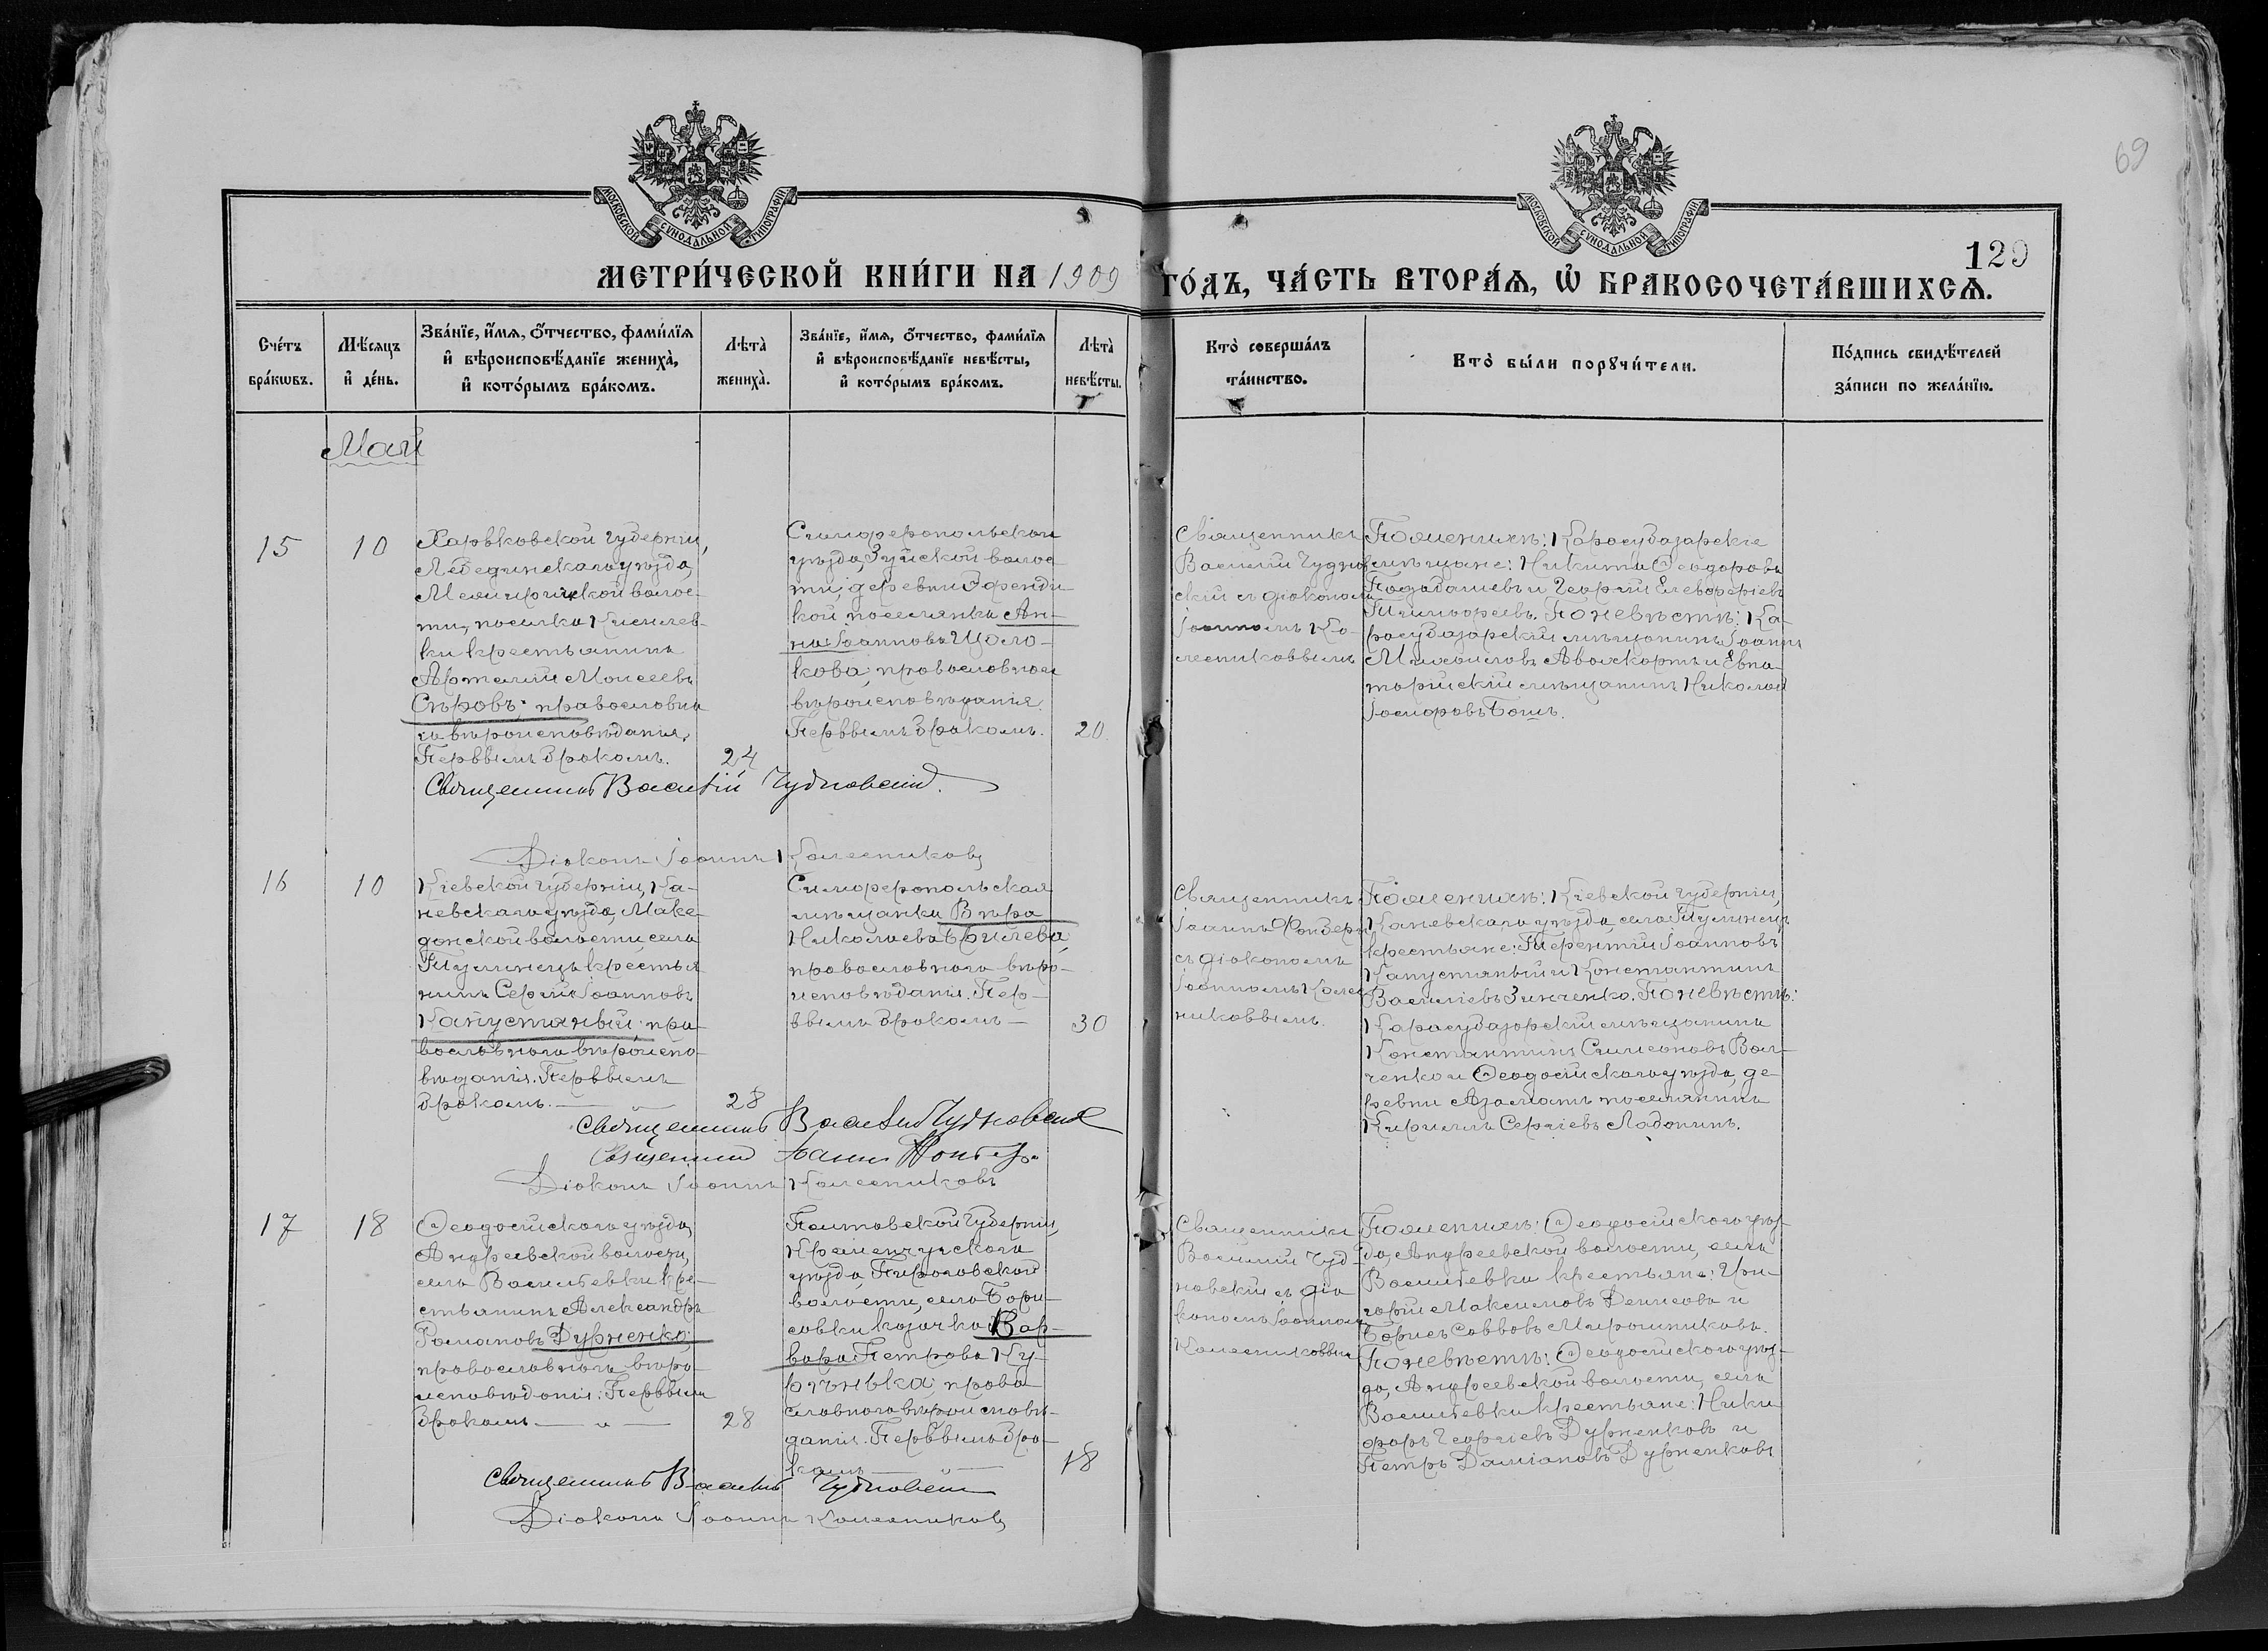 69
129
МОСКОВСКОЙ СѴНОДАЛЬНОЙ ТИПОГРАФІИ
МОСКОВСКОЙ СѴНОДАЛЬНОЙ ТИПОГРАФІИ
МЕТРИ́ЧЕСКОЙ КНИ́ГИ НА 1909 ГО́ДЪ, ЧА́СТЬ ВТОРА́Ѧ, Ѡ҆ БРАКОСОЧЕТА́ВШИХСѦ.
Сче́тъ
бра́кѡвъ.
Мѣ́сяцъ
и҆ де́нь.
Зва́нїе, и҆́мѧ, ѻ҆́тчество, фами́лїѧ
и҆ вѣроисповѣ́данїе жениха̀,
и҆ кото́рымъ бра́комъ.
Лѣ́та
жениха̀.
Зва́нїе, и҆́мѧ, ѻ҆́тчество, фами́лїѧ
и҆ вѣроисповѣ́данїе невѣ́сты,
и҆ кото́рымъ бра́комъ.
Лѣ́та
невѣ́сты.
Кто̀ соверша́лъ
та́инство.
Кто̀ бы́ли порꙋчи́тели.
По́дпись свидѣ́телей
за́писи по жела́нїю.
Май
15
10
Харьковской губерніи,
Лебединскаго уѣзда,
волос-
ти, поселка Киселев-
ки крестьянинъ
Моисеевъ
Сѣровъ; православна
го вѣроисповѣданія,
Первымъ бракомъ.
24
Симферопольскаго
уѣзда, Зуйской волос-
ти, деревни Эфенди
кой поселянка Ан-
на Іоаннова Щоло-
кова; православнаго
вѣроисповѣданія.
Первымъ бракомъ.
20
Священникъ
Василій Чуднов
скій съ діакономъ
Іоанномъ Ко-
лесниковымъ
По женихѣ: Карасубазарскіе
мѣщане: Никита Ѳеодоровъ
и Георгій Елевѳеріевъ
Тимофеевъ. По невѣстѣ: Ка-
расубазарскій мѣщанинъ Іоаннъ
Михаиловъ и Евпа-
торійскій мѣщанинъ Николай
Бошъ.
Священникъ Василій Чудновскій.
Діаконъ Іоаннъ Колесниковъ
16
10
Кіевской губерніи, Ка-
невскаго уѣзда, Маке-
донской волости села
Тулинецъ крестья
нинъ Сергій Іоанновъ
Капустяный; пра-
вославнаго вѣроиспо-
вѣданія. Первымъ
бракомъ.
28
Симферопольская
мѣщанка Вѣра
Николаева
православнаго вѣро-
исповѣданія. Пер-
вымъ бракомъ
30
Священникъ
Іоаннъ
съ діакономъ
Іоанномъ Колес
никовымъ.
По женихѣ: Кіевской губерніи,
Каневскаго уѣзда, села Тулинецъ
крестьяне: Терентій Іоанновъ
Капустяный и Константинъ
Василіевъ Зинченко. По невѣстѣ:
Карасубазарскій мѣщанинъ
Константинъ Симеоновъ Вол-
ченко и Ѳеодосійскаго уѣзда, де
ревни Азаматъ поселянинъ
Кириллъ Сергіевъ Ладонинъ.
Священникъ Василій Чудновскій
Священникъ Іоаннъ
Діаконъ Іоаннъ Колесниковъ
17
18
Ѳеодосійскаго уѣзда,
Андреевской волости,
села Васильевки кре-
стьянинъ Александръ
Романовъ Дурненко;
православнаго вѣро
исповѣданія. Первымъ
бракомъ
28
Полтавской губерніи,
Кременчугскаго
уѣзда, Пироговской
волости, села Бори-
совки козачка Вар-
вара Петрова Ку-
; право
славнаго вѣроисповѣ-
данія. Первымъ бра-
комъ
18
Священникъ
Василій Чуд-
новскій съ діа
кономъ Іоанномъ
Колесниковымъ
По женихѣ: Ѳеодосійскаго уѣз-
да, Андреевской волости, села
Васильевки крестьяне: Гри-
горій Максимовъ Денисовъ и
Борисъ Савовъ Мирошниковъ.
По невѣстѣ: Ѳеодосійскаго уѣз-
да, Андреевской волости, села
Васильевки крестьяне: Ники
форъ Георгіевъ Дурненковъ и
Петръ Даміановъ Дурненковъ
Священникъ Василій Чудновскій
Діаконъ Іоаннъ Колесниковъ